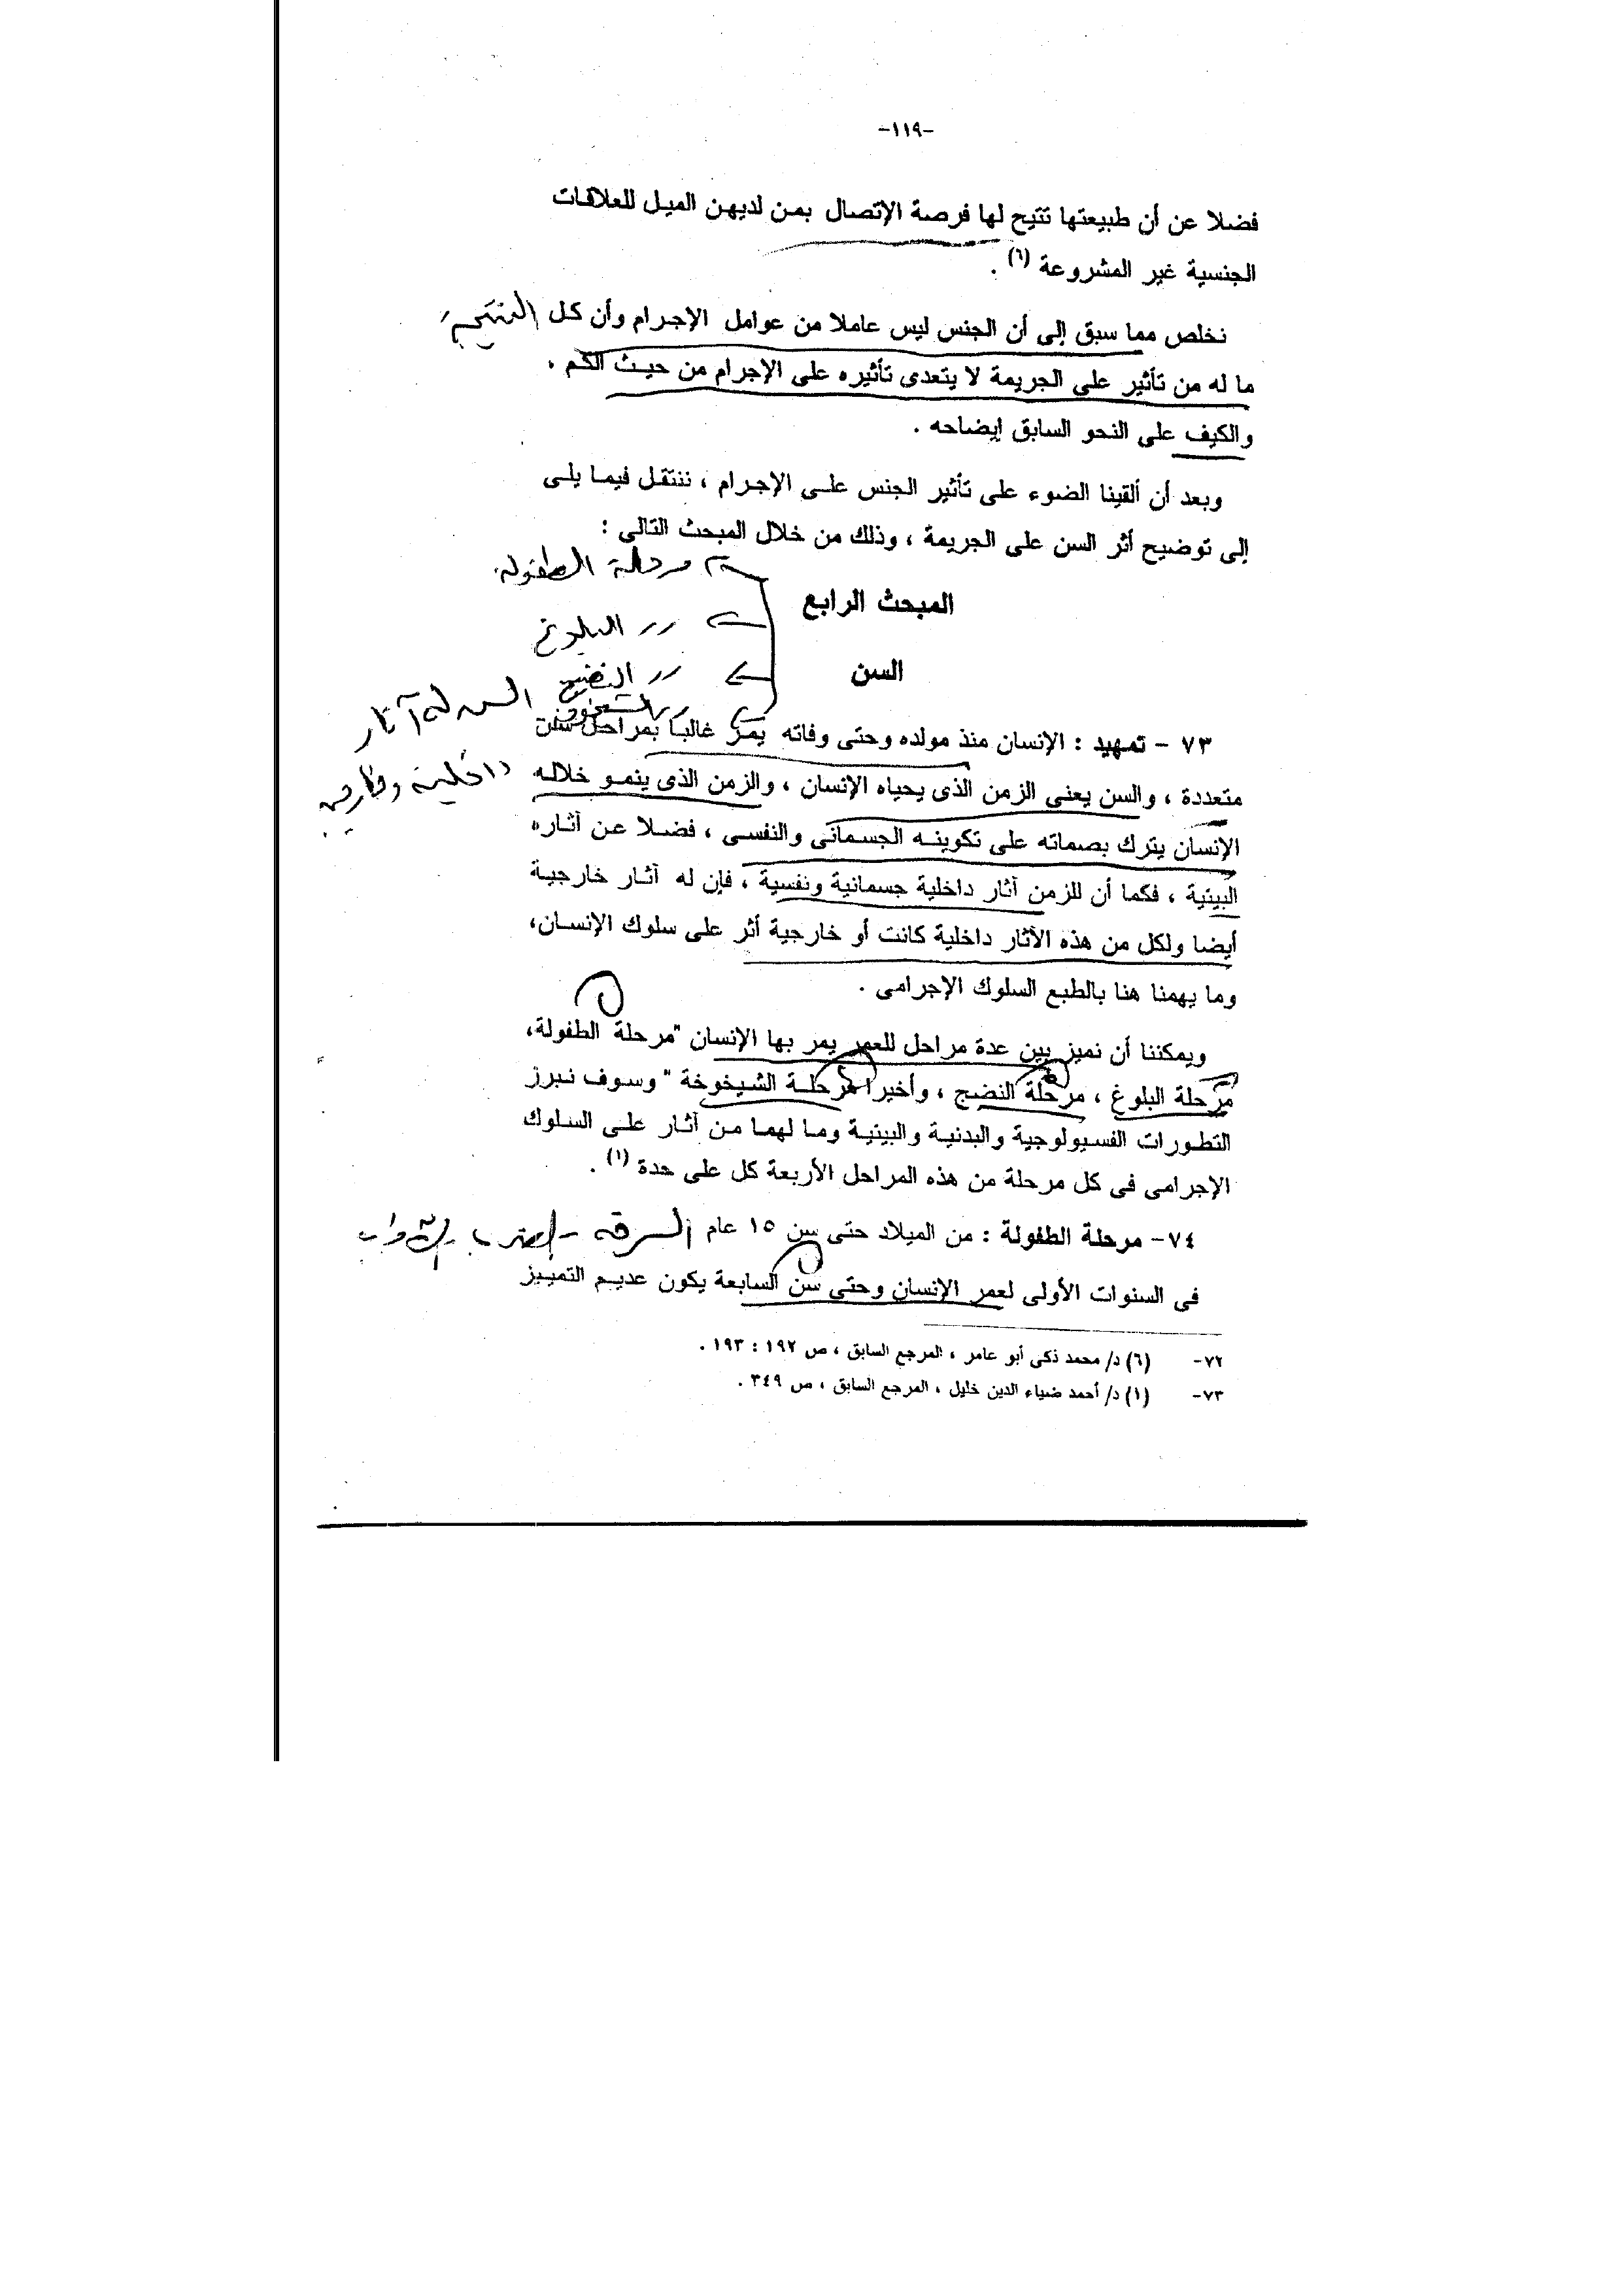 -١١٩-
فضلا عن أن طبيعتها تتيح لها فرصة الإتصال بمن لديهن الميل للعلاقات
الجنسية غير المشروعة (٦) .
نخلص مما سبق إلى أن الجنس ليس عاملا من عوامل الإجرام وأن كل النتيجة
ما له من تأثير على الجريمة لا يتعدى تأثيره على الإجرام من حيث الكم ،
والكيف على النحو السابق إيضاحه .
وبعد أن ألقينا الضوء على تأثير الجنس على الإجرام ، ننتقل فيما يلى
إلى توضيح أثر السن على الجريمة ، وذلك من خلال المبحث التالى :
مرحلة الطفولة
المبحث الرابع
〃 البلوغ
السن
〃 النضج
〃 الشيخوخة
السن له آثار
داخلية وخارجية
٧٣ - تمهيد : الإنسان منذ مولده وحتى وفاته يمر غالبا بمراحل سن
متعددة ، والسن يعنى الزمن الذى يحياه الإنسان ، والزمن الذى ينمو خلاله
الإنسان يترك بصماته على تكوينه الجسمانى والنفسى ، فضلا عن آثاره
البيئية ، فكما أن للزمن آثار داخلية جسمانية ونفسية ، فإن له آثار خارجية
أيضا ولكل من هذه الآثار داخلية كانت أو خارجية أثر على سلوك الإنسان،
وما يهمنا هنا بالطبع السلوك الإجرامى .
ويمكننا أن نميز بين عدة مراحل للعمر يمر بها الإنسان "مرحلة الطفولة،
مرحلة البلوغ ، مرحلة النضج ، وأخيرا مرحلة الشيخوخة " وسوف نبرز
التطورات الفسيولوجية والبدنية والبيئية وما لهما من آثار على السلوك
الإجرامى فى كل مرحلة من هذه المراحل الأربعة كل على حدة (١) .
٧٤- مرحلة الطفولة : من الميلاد حتى سن ١٥ عام السرقة - الضرب
فى السنوات الأولى لعمر الإنسان وحتى سن السابعة يكون عديم التمييز
٧٢- (٦) د/ محمد ذكى أبو عامر ، المرجع السابق ، ص ١٩٢ : ١٩٣ .
٧٣- (١) د/ أحمد ضياء الدين خليل ، المرجع السابق ، ص ٣٤٩ .